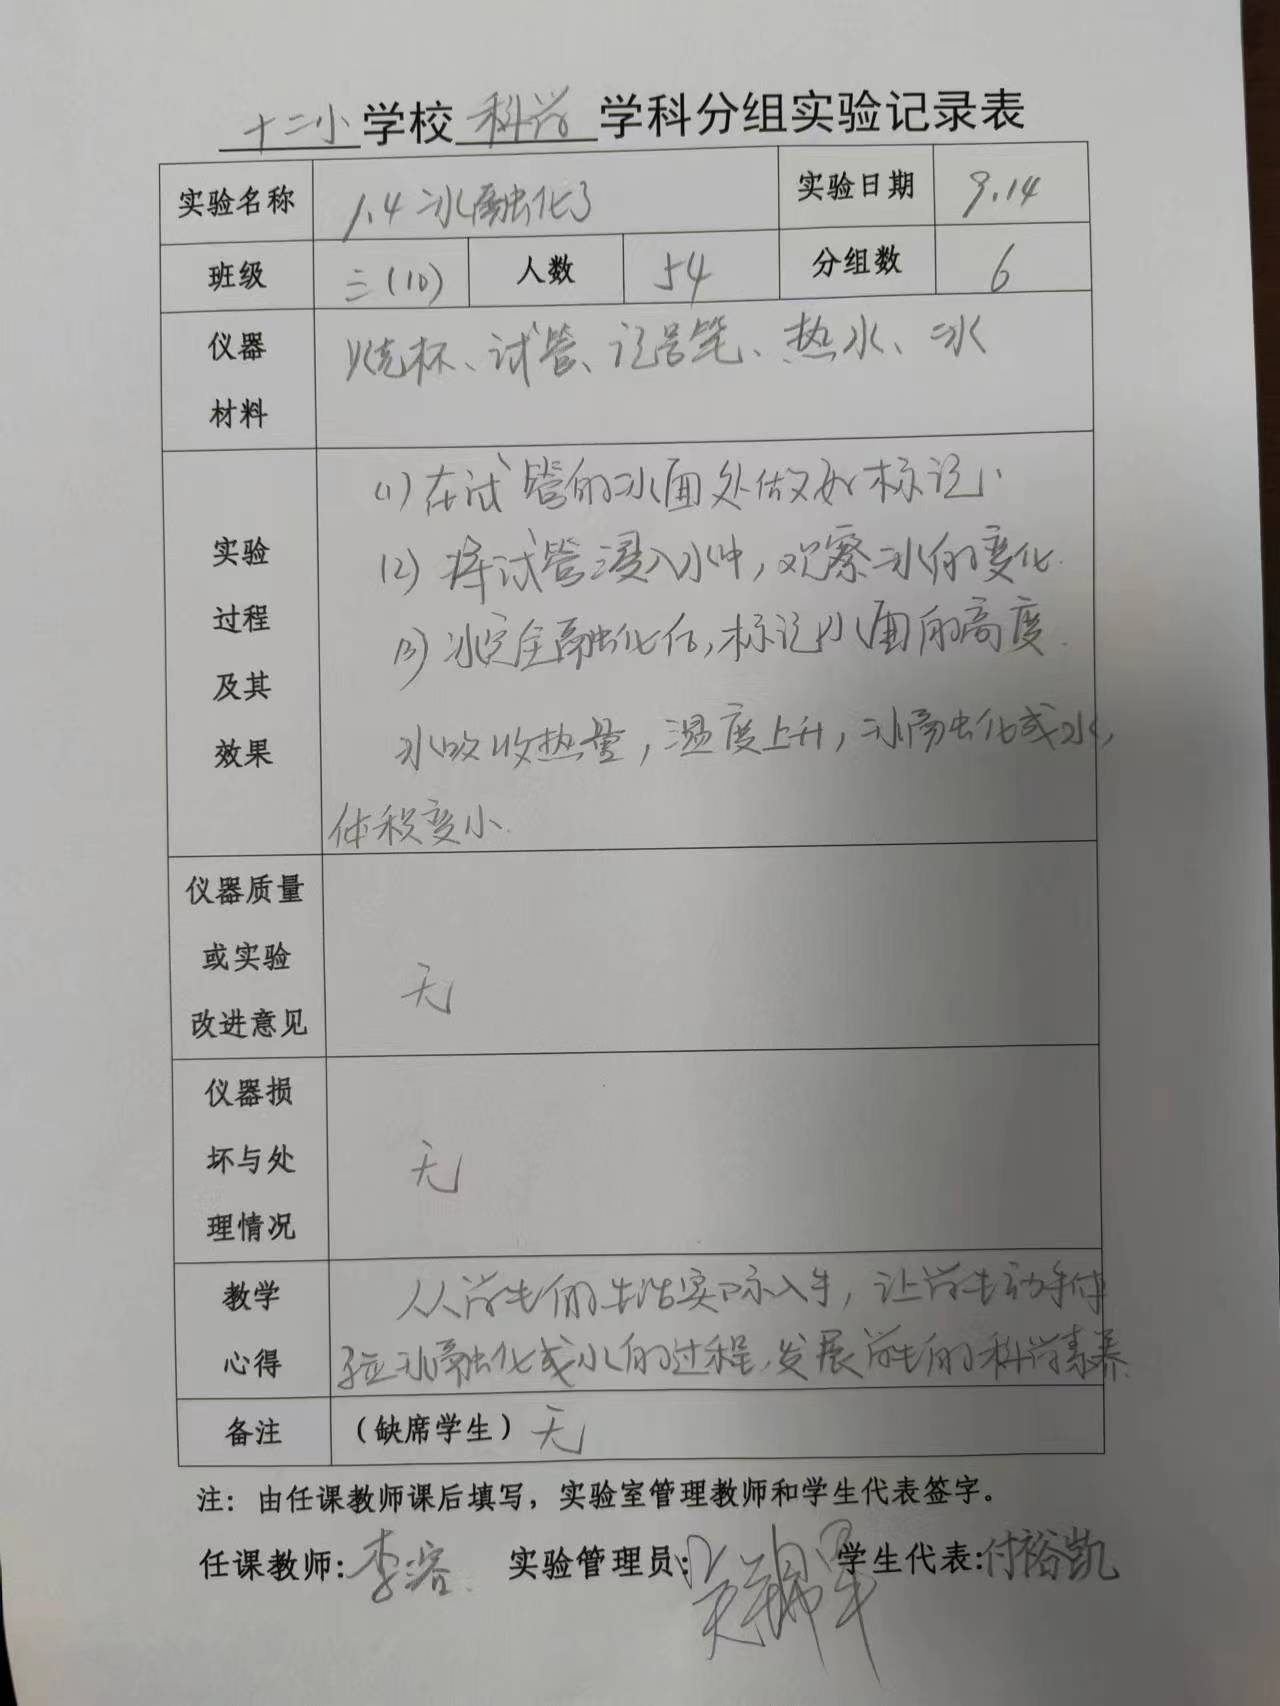 十二小学校科学学科分组实验记录表
实验名称 1.4 冰融化了 实验日期 9.14
班级 三(10) 人数 54 分组数 6
仪器
材料
烧杯、试管、记号笔、热水、冰
实验
过程
及其
效果
(1)在试管的冰面处做好标记。
(2)将试管浸入水中,观察冰的变化.
(3)冰完全融化后,标记水面的高度.
冰吸收热量,温度上升,冰融化成水,
体积变小.
仪器质量
或实验
改进意见
无
仪器损
坏与处
理情况
无
教学
心得
从学生的生活实际入手,让学生动手体
验冰融化成水的过程,发展学生的科学素养.
备注 (缺席学生)无
注:由任课教师课后填写,实验室管理教师和学生代表签字。
任课教师:李容 实验管理员: 学生代表:付裕凯